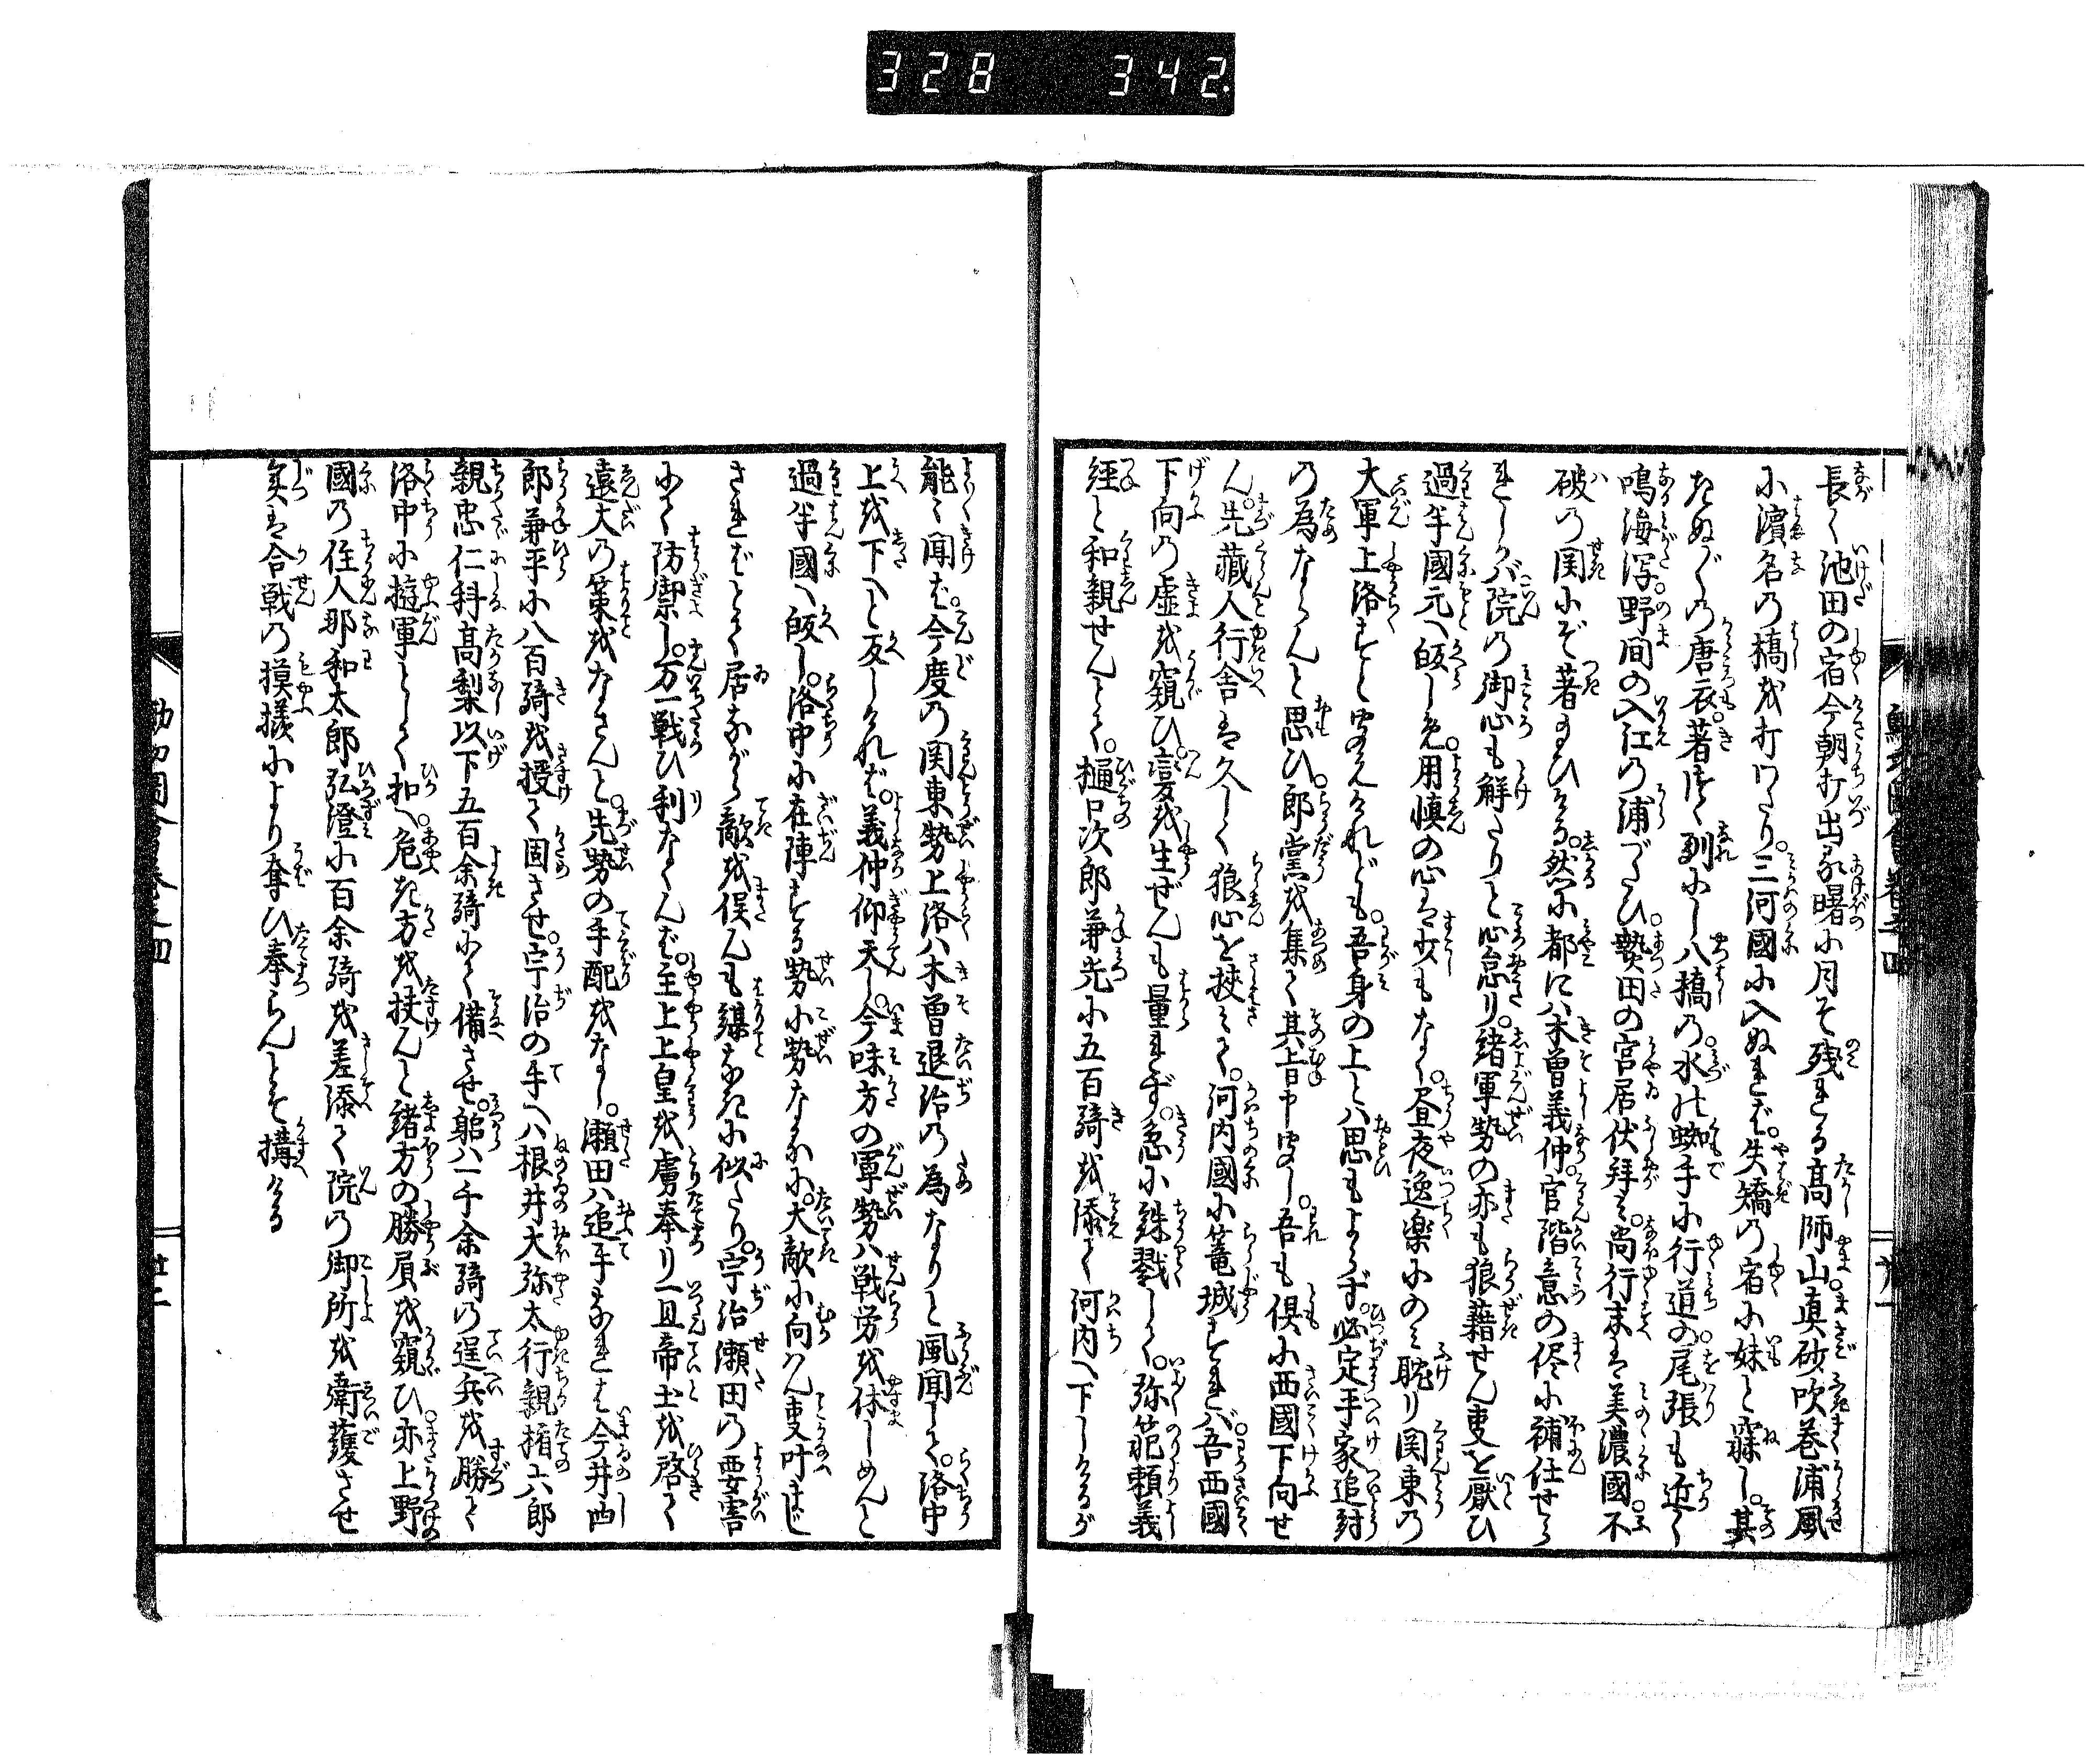 328 342
長く池田の宿今朝打出る曙に月ぞ残れる高師山真砂吹巻浦風
に濱名の橋を打わたり。三河國に入ぬれば。矢矯の宿に妹と寐し。其
たぬぐの唐衣。著つゝ馴にし八橋の。水の蜘手に行道の。尾張も近く
鳴海潟。野間の入江の浦づたひ。熱田の宮居伏拝み。尚行末は美濃國。不
破の関にぞ著給ひける。然に都には木曽義仲。官階意の侭に補任せら
れしかバ院の御心も解たりと心怠り。緒軍勢の亦も狼藉せん叓を厭ひ
過半國元へ皈しめ。用慎の心は少もなく。昼夜逸楽にのミ耽り関東の
大軍上洛すと聞えけれども。吾身の上とハ思もよらず。必定平家追討
の為ならんと思ひ。郎黨を集て其旨申聞し。吾も倶に西國下向せ
ん。先藏人行舎は久しく狼心を挾ミて。河内國に篭城すれバ。吾西國
下向の虚を窺ひ。變を生ぜんも量れず。急に誅戮して。弥範頼義
経と和親せんとて。樋口次郎兼光に五百騎を添て河内へ下しけるが
能々聞ば。今度の関東勢上洛ハ木曽退治の為なりと風聞して。洛中
上を下へと反しければ。義仲仰天し。今味方の軍勢ハ戦労を休しめんと
過半國へ皈し。洛中に在陣する勢小勢なるに。大敵に向ハん叓叶まじ
さればとて居ながら敵を俟んも謀なきに似たり。宇治瀬田の要害
にて防禦し。万一戦ひ利なくんば。主上上皇を虜奉り一且帝土を啓て
遠大の策をなさんと。先勢の手配をなし。瀬田ハ追手なれは今井四
郎兼平に八百騎を授て固させ。宇治の手ハ根井大弥太行親楯六郎
親忠仁科高梨以下五百余騎にて備させ。躬ハ一千余騎の逞兵を勝て
洛中に遊軍として扣へ。危き方を扶んと緒方の勝屓を窺ひ。亦上野
國の住人那和太郎弘澄に百余騎を差添て院の御所を衛護させ
実は合戦の摸撲により奪ひ奉らんとぞ構へける
廿二